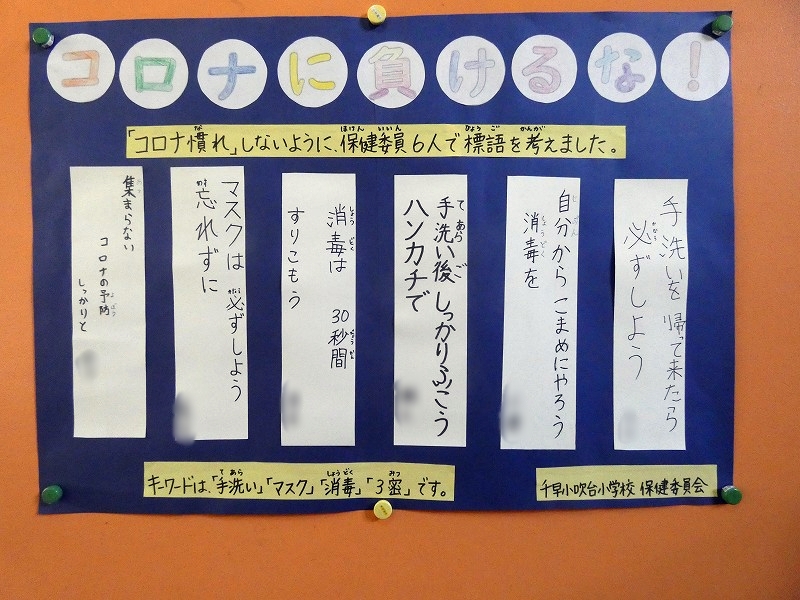 コロナに負けるな！
「コロナ慣れ」しないように、保健委員6人で標語を考えました。
手洗いを 帰って来たら
必ずしよう
自分から こまめにやろう
消毒を
手洗い後 しっかりふこう
ハンカチで
消毒は 30秒間
すりこもう
マスクは 必ずしよう
忘れずに
集まらない
コロナの予防
しっかりと
キーワードは、「手洗い」「マスク」「消毒」「3密」です。
千早小吹台小学校 保健委員会